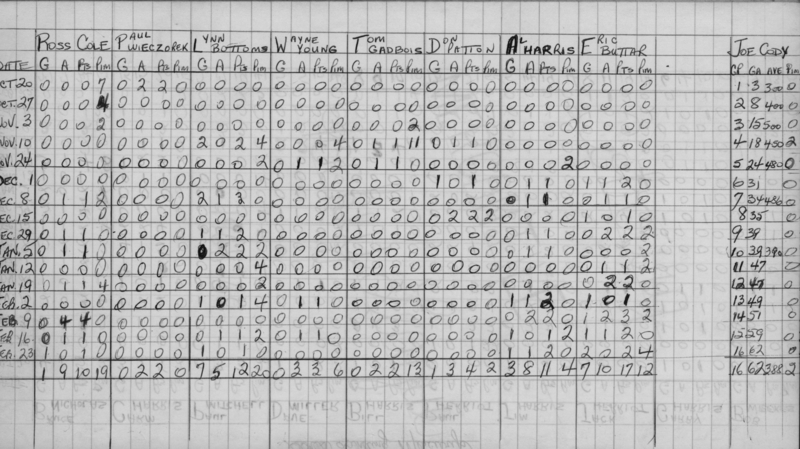 ROSS COLE PAUL WIECZOREK LYNN BOTTOMS WAYNE YOUNG TOM GADBOIS DON PATTON AL HARRIS ERIC BUTTAR JOE CODY
DATE G A Pts Pim G A Pts Pim G A Pts Pim G A Pts Pim G A Pts Pim G A Pts Pim G A Pts Pim G A Pts Pim GP GA AVE Pim
CT. 20 0 0 0 7 0 2 2 0 0 0 0 0 0 0 0 0 0 0 0 0 0 0 0 0 0 0 0 0 0 0 0 0 1 3 300 0
CT. 27 0 0 0 4 0 0 0 0 0 0 0 0 0 0 0 0 0 0 0 0 0 0 0 0 0 0 0 0 0 0 0 0 2 8 400 0
OV. 3 0 0 0 2 0 0 0 0 0 0 0 0 0 0 0 0 0 0 0 2 0 0 0 0 0 0 0 0 0 0 0 0 3 15 500 0
NOV. 10 0 0 0 0 0 0 0 0 2 0 2 4 0 0 0 4 0 1 1 11 0 1 1 0 0 0 0 0 0 0 0 0 4 18 450 2
OV. 24 0 0 0 0 0 0 0 0 0 0 0 2 0 1 1 2 0 1 1 0 0 0 0 0 0 0 0 2 0 0 0 0 5 24 480 0
DEC. 1 0 0 0 0 0 0 0 0 0 0 0 0 0 0 0 0 0 0 0 0 1 0 1 0 0 1 1 0 1 1 2 0 6 31
EC. 8 0 1 1 2 0 0 0 0 2 1 3 0 0 0 0 0 0 0 0 0 0 0 0 0 0 1 1 0 0 1 1 0 7 34 486 0
EC. 15 0 0 0 0 0 0 0 0 0 0 0 0 0 0 0 0 0 0 0 0 0 2 2 2 0 0 0 0 1 0 1 0 8 35
EC. 29 0 1 1 0 0 0 0 0 1 1 2 0 0 0 0 0 0 0 0 0 0 0 0 0 0 1 1 0 0 2 2 2 9 39
JAN. 5 0 1 1 0 0 0 0 0 0 2 2 2 0 0 0 0 0 0 0 0 0 0 0 0 0 1 1 0 0 0 0 2 10 39 390 0
JAN. 12 0 0 0 0 0 0 0 0 0 0 0 4 0 0 0 0 0 0 0 0 0 0 0 0 0 0 0 0 0 1 1 2 11 47
JAN. 19 0 1 1 4 0 0 0 0 0 0 0 2 0 0 0 0 0 0 0 0 0 0 0 0 0 0 0 0 0 2 2 0 12 47
FEB. 2 0 0 0 0 0 0 0 0 1 0 1 4 0 1 1 0 0 0 0 0 0 0 0 0 1 1 2 0 1 0 1 0 13 49
FEB. 9 0 4 4 0 0 0 0 0 0 0 0 0 0 0 0 0 0 0 0 0 0 0 0 0 0 2 2 0 1 2 3 2 14 51
FEB 16 0 1 1 0 0 0 0 0 0 1 1 2 0 1 1 0 0 0 0 0 0 0 0 0 1 0 1 2 1 1 2 0 15 59
EB. 23 1 0 1 0 0 0 0 0 1 0 1 0 0 0 0 0 0 0 0 0 0 0 0 0 1 1 2 0 2 0 2 4 16 62
1 9 10 19 0 2 2 0 7 5 12 20 0 3 3 6 0 2 2 13 1 3 4 2 3 8 11 4 7 10 17 12 16 62 388 2